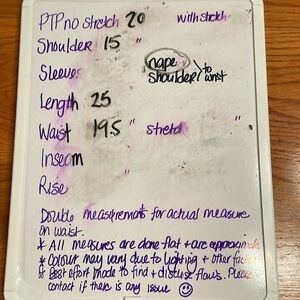 PTP no stretch 20 with stretch
Shoulder 15 "
Sleeves nape shoulder > to wrist
Length 25
Waist 19.5 " stretch "
Inseam
Rise
Double measurements for actual measure
on waist.
* All measures are done flat + are approximate
* Colour may vary due to lighting + other factors
* Best effort made to find + disclose flaws. Please
contact if there is any issue ☺